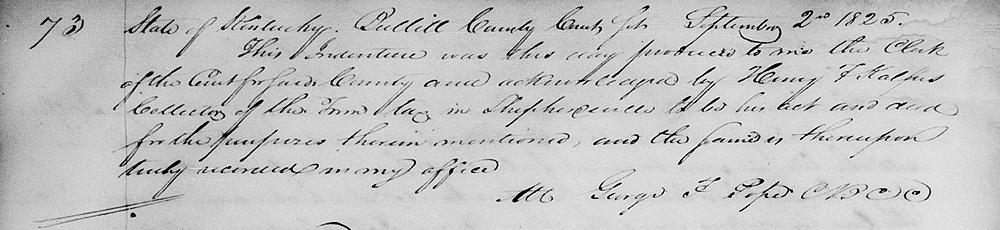 73 State of Kentucky. Bullitt County Court Sct September 2nd 1825.
This Indenture was this day produced to me the Clerk
of the Court for said County and acknowledged by Henry F Kalfus
Collector of the Town tax in Shepherdsville to be his act and deed
for the purposes therein mentioned, and the same is thereupon
truly recorded in my office
Att George F. Pope CBCC